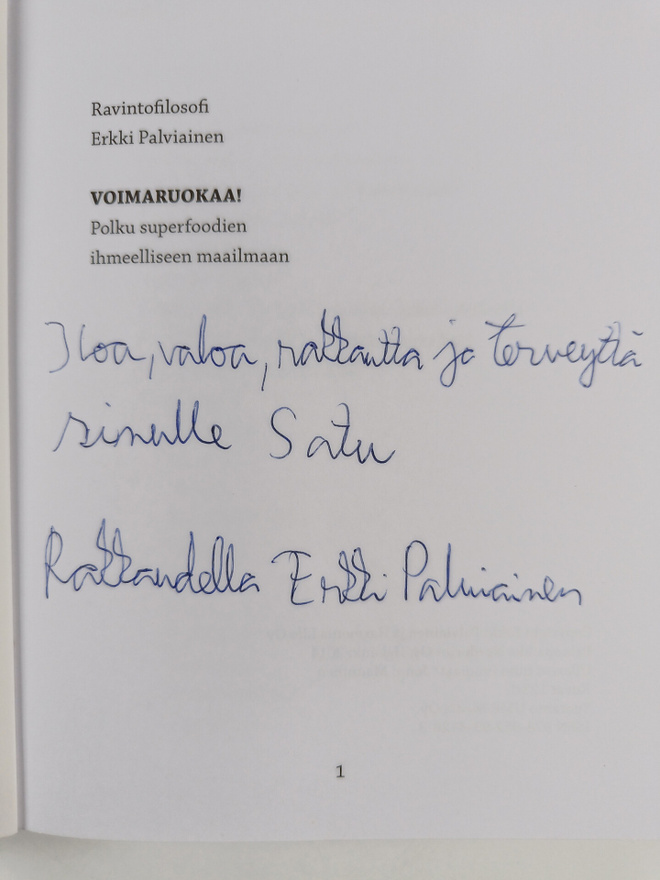 Ravintofilosofi
Erkki Palviainen
VOIMARUOKAA!
Polku superfoodien
ihmeelliseen maailmaan
Iloa, valoa, rakkautta ja terveyttä
sinulle Satu
Rakkaudella Erkki Palviainen
1